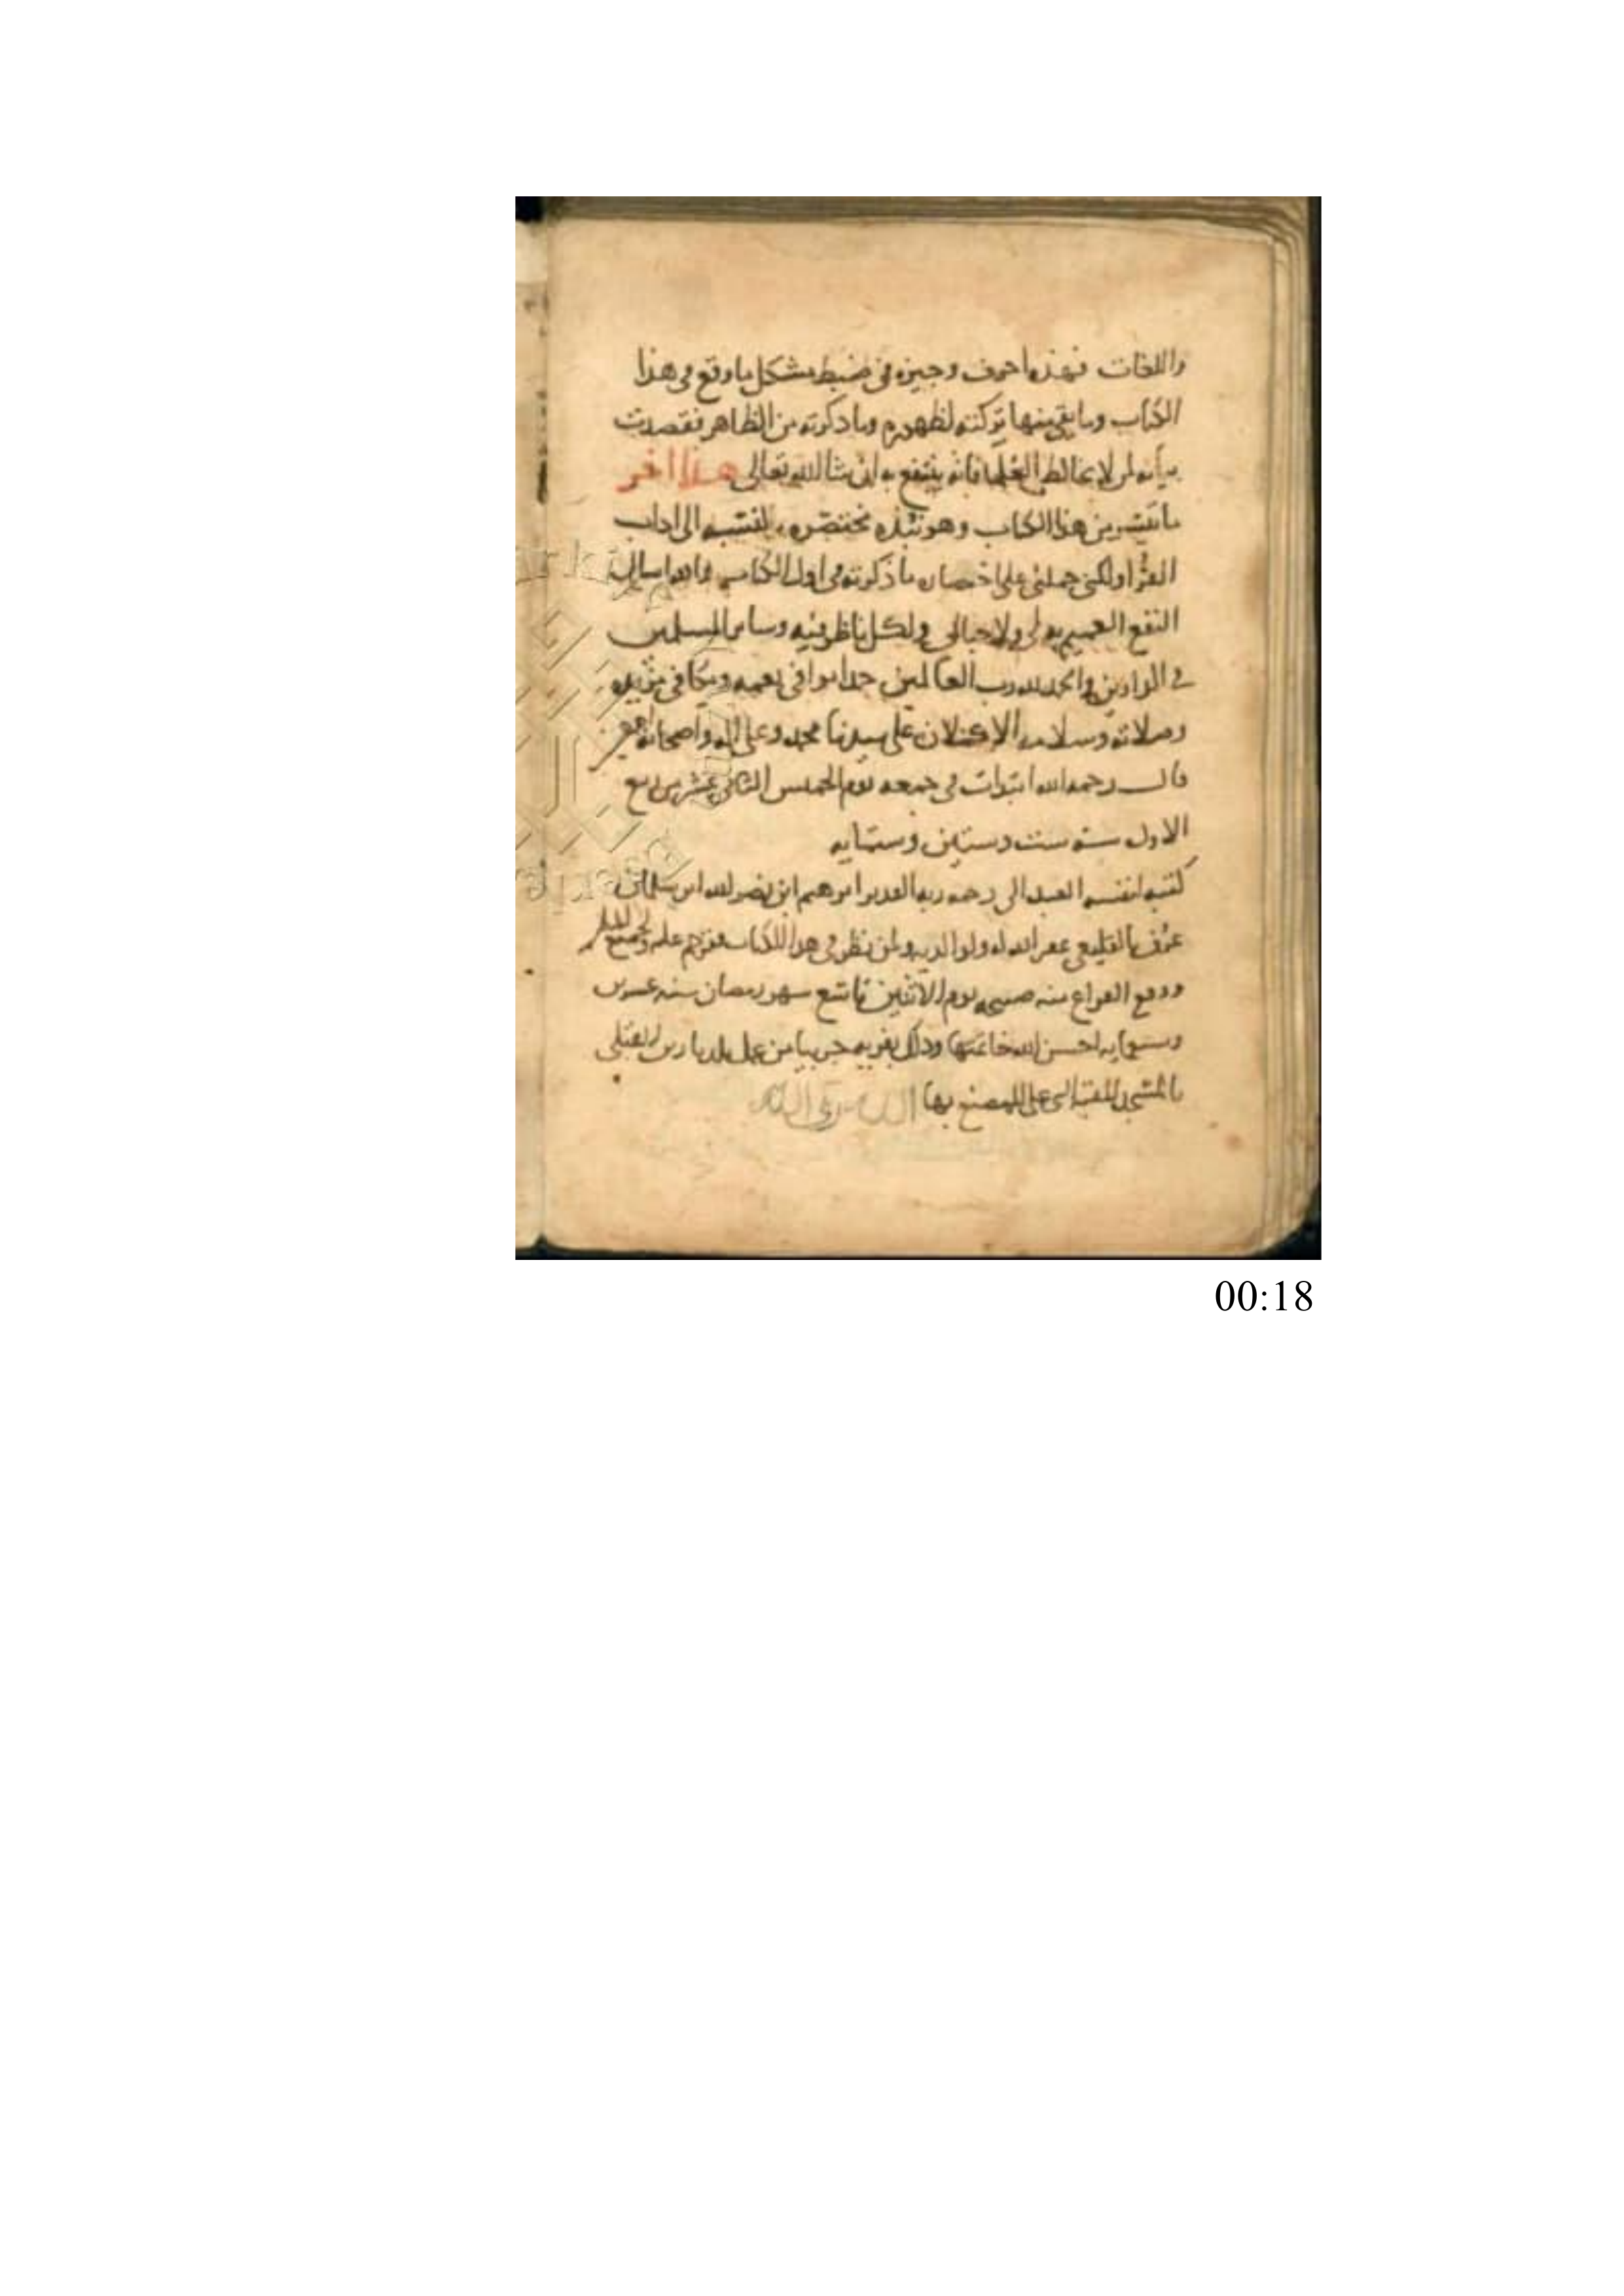 واللغات فهذه احرف وجيزه في ضبط مشكل ما وقع في هذا
الكتاب وما بقي منها تركته لظهوره وما ذكرته من الظاهر فقصدت
بيانه لمن لا يخالط العلما فانه ينتفع به ان شا الله تعالى هذا اخر
ما تيسر من هذا الكتاب وهو نبذه مختصره بالنسبه الى اداب
القرا ولكن حملني على اختصاره ما ذكرته في اول الكتاب والله اسال
النفع العميم به لي ولاحبابي ولكل ناظر فيه وساير المسلمين
في الدارين والحمد لله رب العالمين حمدا يوافي نعمه ويكافي مزيده
وصلاته وسلامه الاكملان على سيدنا محمد وعلى اله واصحابه اجمعين
قال رحمه الله ابتدات في جمعه يوم الخميس الثاني عشر من ربيع
الاول سنه ست وستين وستمايه
كتبه لنفسه العبد الى رحمه ربه القدير ابرهيم ابن نصر الله ابن سلمان
عرف بالقليعي غفر الله له ولوالديه ولمن نظر في هذا الكتاب وترحم عليه ولجميع المسلمين
ووقع الفراغ منه صبيحه يوم الاثنين تاسع شهر رمضان سنه عشرين
وسبعمايه احسن الله خاتمتها وذلك بقريه من عمل
بالمسجد بها
00:18